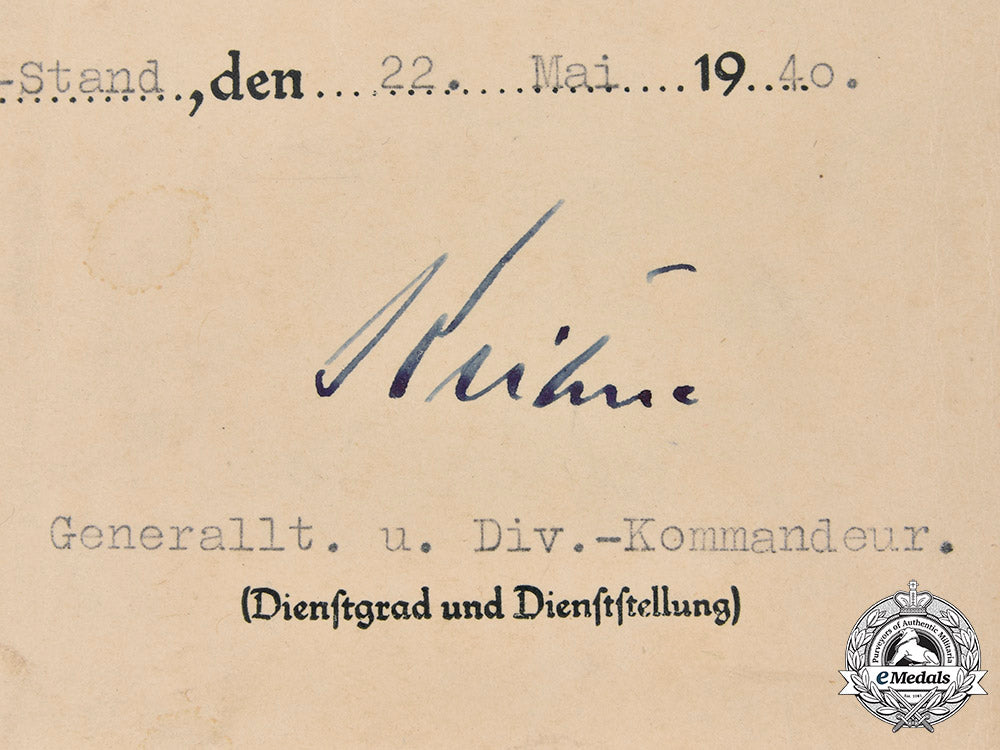 -Stand, den 22. Mai 1940.
Generallt. u. Div.-Kommandeur.
(Dienſtgrad und Dienſtſtellung)
Purveyors of Authentic Militaria
eMedals